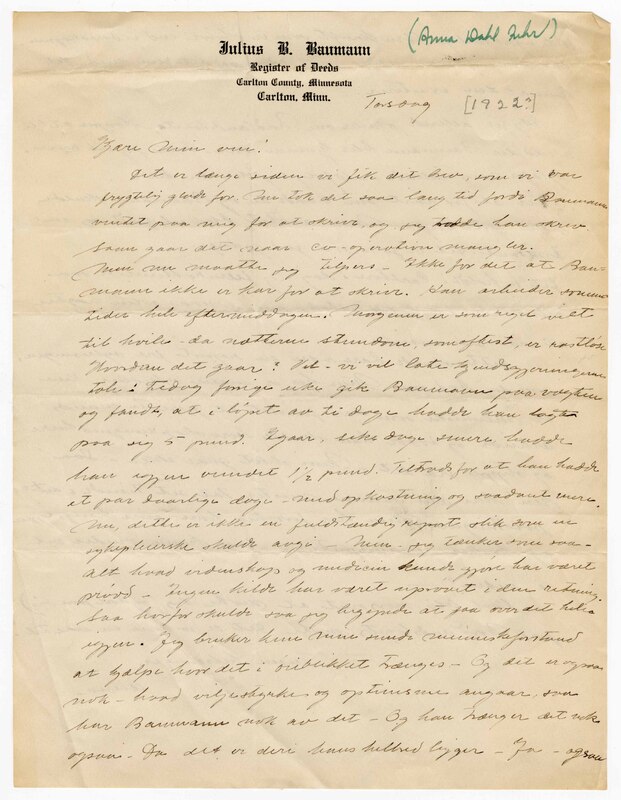 (Anna Dahl Fuhr)
Julius B. Baumann
Register of Deeds
Carlton County, Minnesota
Carlton, Minn.
Torsdag [1922?]
Kjære Min ven!
Det er længe siden vi fik det brev, som vi var
frygtelig glade for. Nu tok det saa lang tid fordi Baumann
ventet paa mig for at skrive, og jeg trodde han skrev
Saan gaar det naar co-operation mangler.
Men nu maatte jeg tilpers – Ikke for det at Bau-
mann ikke er kar for at skrive. Han arbeider somme
tider hele eftermiddagen. Morgenen er som regel viet
til hvile – da nætterne stundom, somoftest, er rastløse
Hvordan det gaar? Vel – vi vil late kjendsgjerningerne
tale: Tirsdag forrige uke gik Baumann paa vegten
og fandt, at i løpet av ti dage hadde han lagt
paa sig 5 pund. Igaar, seks dage senere hadde
han igjen vundet 1½ pund. Tiltrods for at han hadde
et par daarlige dage – med ophostning og saadant mere.
Nu, dette er ikke en fuldstændig report slik som en
sykepleierske skulde avgi – Men – jeg tænker som saa –
alt hvad videnskap og medicin kunde gjøre har været
prøvd – Ingen kilde har været uprøvet i den retning.
Saa hvorfor skulde saa jeg begynde at gaa over det hele
igjen. Jeg bruker kun min sunde menneskeforstand
at hjælpe hvor det i øieblikket trænges – Og det er ogsaa
nok – hvad viljestyrke og optimisme angaar, saa
har Baumann nok av det – Og han trænger det nok
ogsaa – Da det er deri hans helbred ligger – Ja – ogsaa